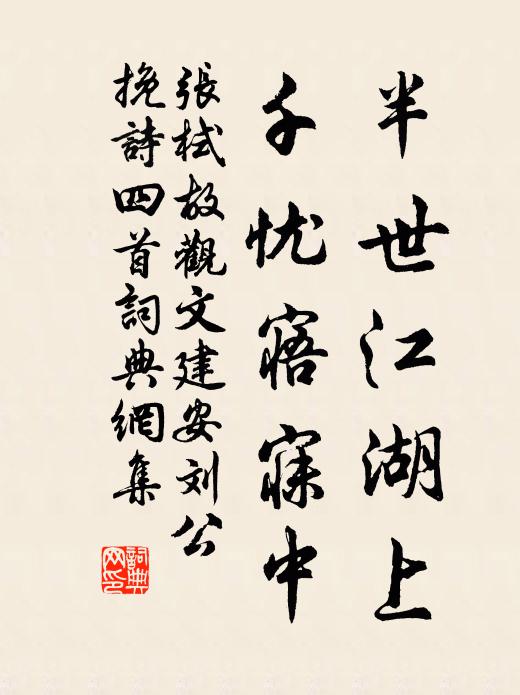 半世江湖上
千忧寤寐中
張栻故觀文建安刘公
挽詩四首詞典網集
詞典
网印